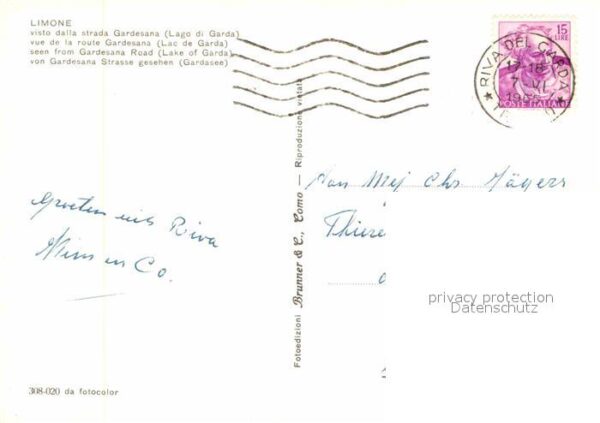 LIMONE
visto dalla strada Gardesana (Lago di Garda)
vue de la route Gardesana (Lac de Garda)
seen from Gardesana Road (Lake of Garda)
von Gardesana Strasse gesehen (Gardasee)
15
LIRE
POSTE ITALIANE
RIVA DEL GARDA
17-18
7 VI
Fotoedizioni Brunner & C., Como — Riproduzione vietata
Aan Mej Chr Jägers
Thiere
Groeten uit Riva
Wim en Co.
privacy protection
Datenschutz
308-020 da fotocolor